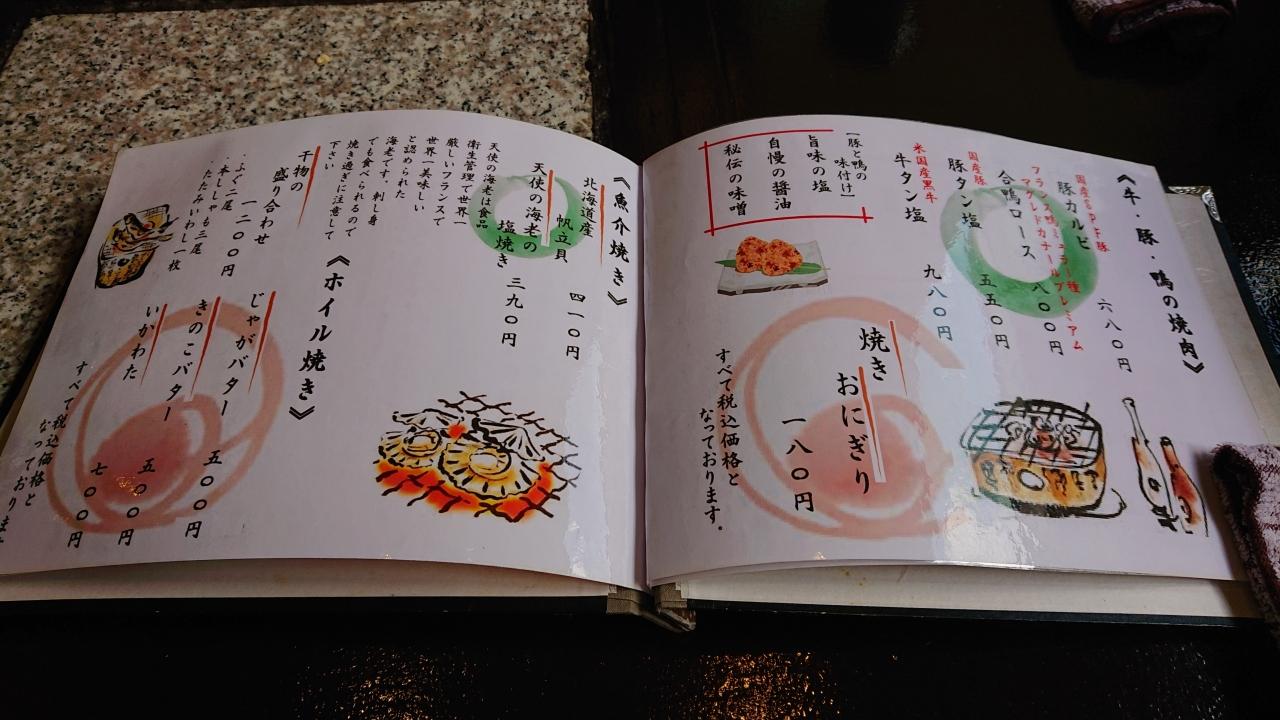 《牛・豚・鴨の焼肉》
国産もち豚
豚カルビ
六八〇円
合鴨ロース
八〇〇円
国産豚
豚タン塩
五五〇円
米国産黒牛
牛タン塩
九八〇円
【豚と鴨の
味付け】
旨味の塩
自慢の醤油
秘伝の味噌
焼き
おにぎり
一八〇円
すべて税込価格と
なっております。
《魚介焼き》
北海道産
帆立貝
四一〇円
天使の海老の
塩焼き
三九〇円
天使の海老は食品
衛生管理で世界一
厳しいフランスで
世界一美味しい
と認められた
海老です。刺し身
でも食べられるので
焼き過ぎに注意して
下さい
干物の
盛り合わせ
一二〇〇円
・ふぐ二尾
・本ししゃも三尾
・たたみいわし一枚
《ホイル焼き》
じゃがバター
五〇〇円
きのこバター
五〇〇円
いかわた
七〇〇円
すべて税込価格と
なっております